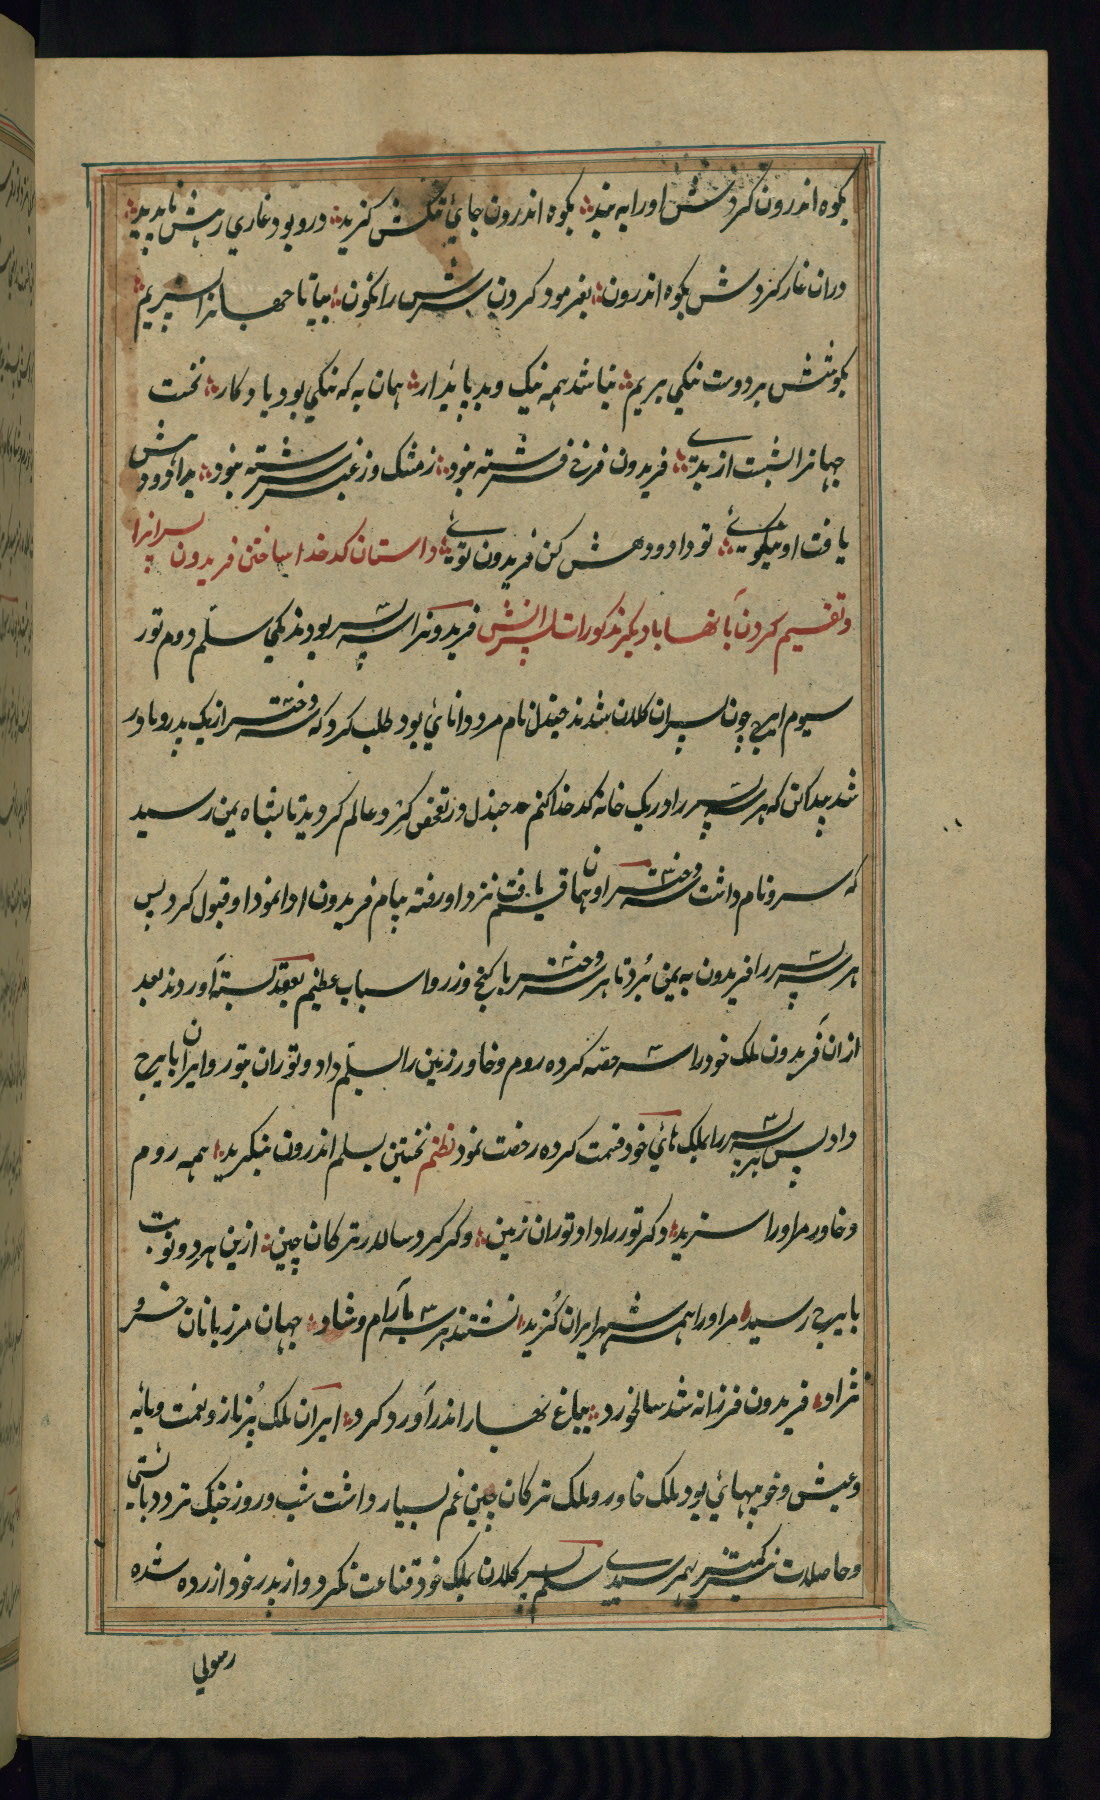 بکوه اندرون کردش اورا به بند بکوه اندرون جائ تنکش کزید درو بود غاری رهش ناپدید
دران غار کردش بکوه اندرون بفرمود کردن سرش رانکون بیا تا جهانرا نسپریم
بکوشش بر دوست نیکی بریم نباشد همه نیک و بد پایدار همان به که نیکی بود یادکار نخست
جهانرا بشست از بدی فریدون فرخ فرشته نبود ز مشک و ز عنبر سرشته نبود بداد و دهش
یافت او نیکوئی تو داد و دهش کن فریدون توئی داستان کدخدا ساختن فریدون پسرانرا
و تقسیم کردن بآنها با دیکر مذکورات پسرانش فریدونرا سه پسر بودند یکی سلم دوم تور
سیوم ایرج چون پسران کلان شدند جندل نام مرد دانائ بود طلب کرد که سه دختر از یک پدر و مادر
شد پیدا کن که هر سه پسر را در یک خانه کدخدا کنم جندل در تفحص کرد عالم کردید تا بشاه یمن رسید
که سرو نام داشت سه دختر او همان قسم یافت نزد او رفته پیام فریدون ادا نمود او قبول کرد پس
هر سه پسر را فریدون به یمن بُرد تا هر سه دختر با کنج و زر و اسباب عظیم بعقد بسته آوردند بعد
ازان فریدون ملک خود را سه حصه کرده روم و خاور زمین را بسلم داد و توران بتور و ایران بایرج
داد پس هر سه پسر را بملک هائ خود قسمت کرده رخصت نمود نظم نخستین بسلم اندرون بنکرید همه روم
و خاور مر اورا سزید دکر تور را داد توران زمین ورا کرد سالار ترکان چین ازین هر دو نوبت
بایرج رسید مر اورا همه شهر ایران کُزید نشستند هر سه بآرام و شاد جهان مرزبانان خسرو
نژاد فریدون فرزانه شد سالخورد بباغ بهار اندر آورد کرد ایران ملک پُر ناز و نعمت و مایه
و عیش و خوبیهائ بود ملک خاور و ملک ترکان چین غم بسیار داشت شب و روز جنک تردد بایستی
و حاصلات نیز کمتر بهم رسیدی سلم پسر کلان بملک خود قناعت نکرد و از پدر خود ازرده شده
رسولی